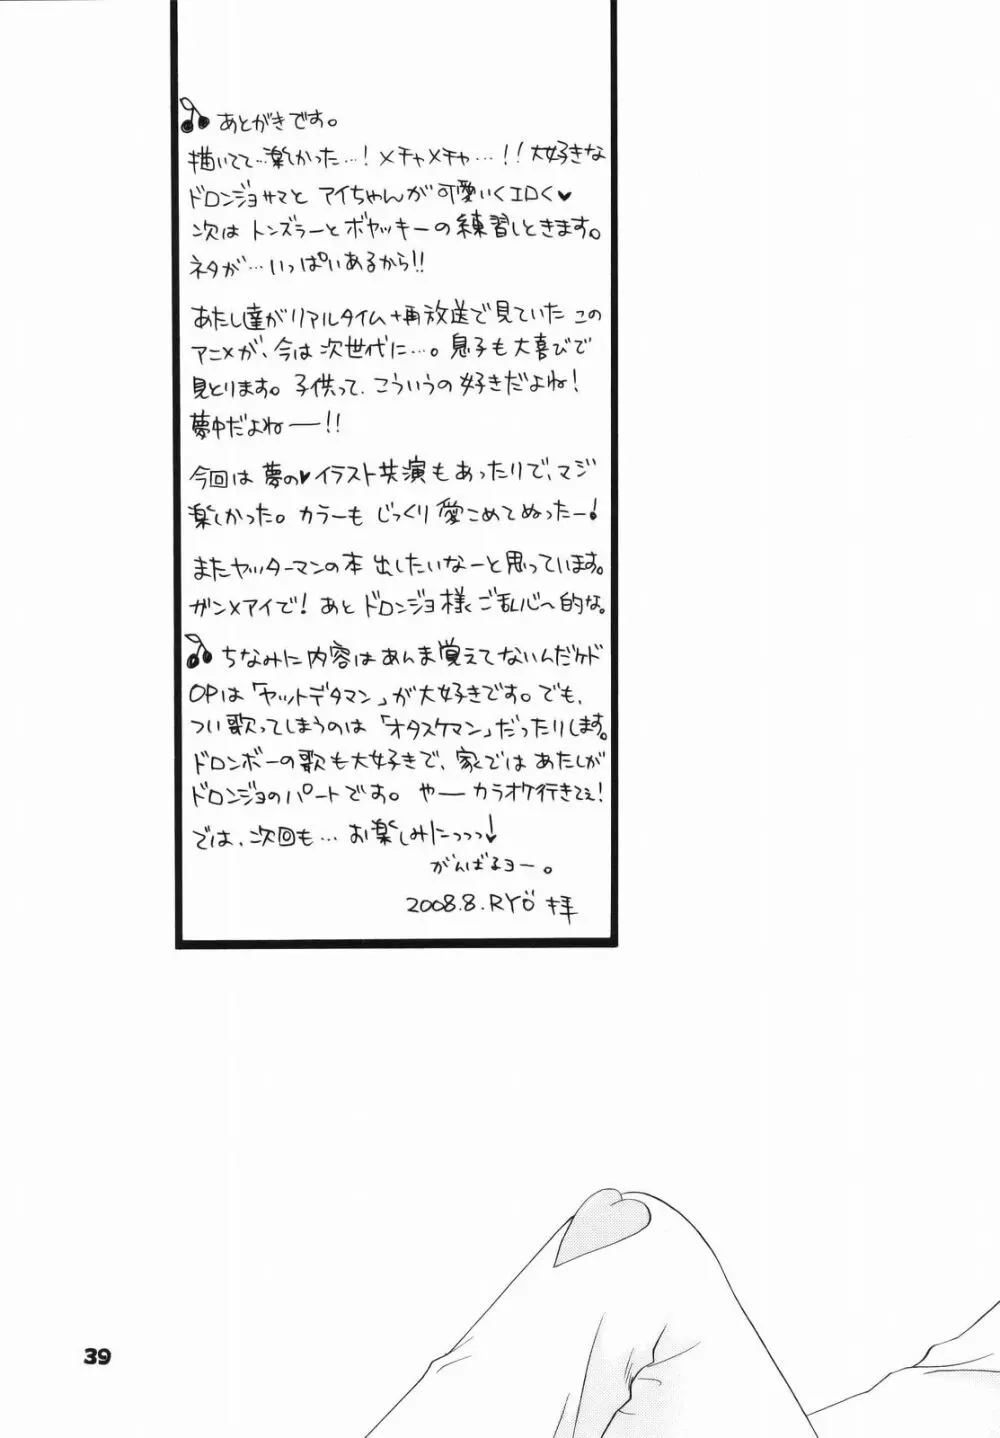 あとがきです。
描いてて…楽しかった…!メチャメチャ…!!大好きな
ドロンジョサマと アイちゃんが可愛いくエロく♥
次は トンズラーとボヤッキーの練習しときます。
ネタが…いっぱいあるから!!
あたし達がリアルタイム+再放送で見ていた この
アニメが、今は次世代に…。息子も大喜びで
見とります。子供って、こういうの好きだよね!
夢中だよねー!!
今回は 夢の♥イラスト共演もあったりで、マジ
楽しかった。カラーも じっくり愛こめてぬったー!
またヤッターマンの本 出したいなーと思っています。
ガン×アイで!あと ドロンジョ様ご乱心〜的な。
ちなみに内容はあんま覚えてないんだケド
OPは「ヤットデタマン」が大好きです。でも、
つい歌ってしまうのは「オタスケマン」だったりします。
ドロンボーの歌も大好きで、家ではあたしが
ドロンジョのパートです。やーカラオケ行きてぇ!
では、次回も…お楽しみにっっっ↓
がんばるヨー。
2008.8.RYÖ 拝
39